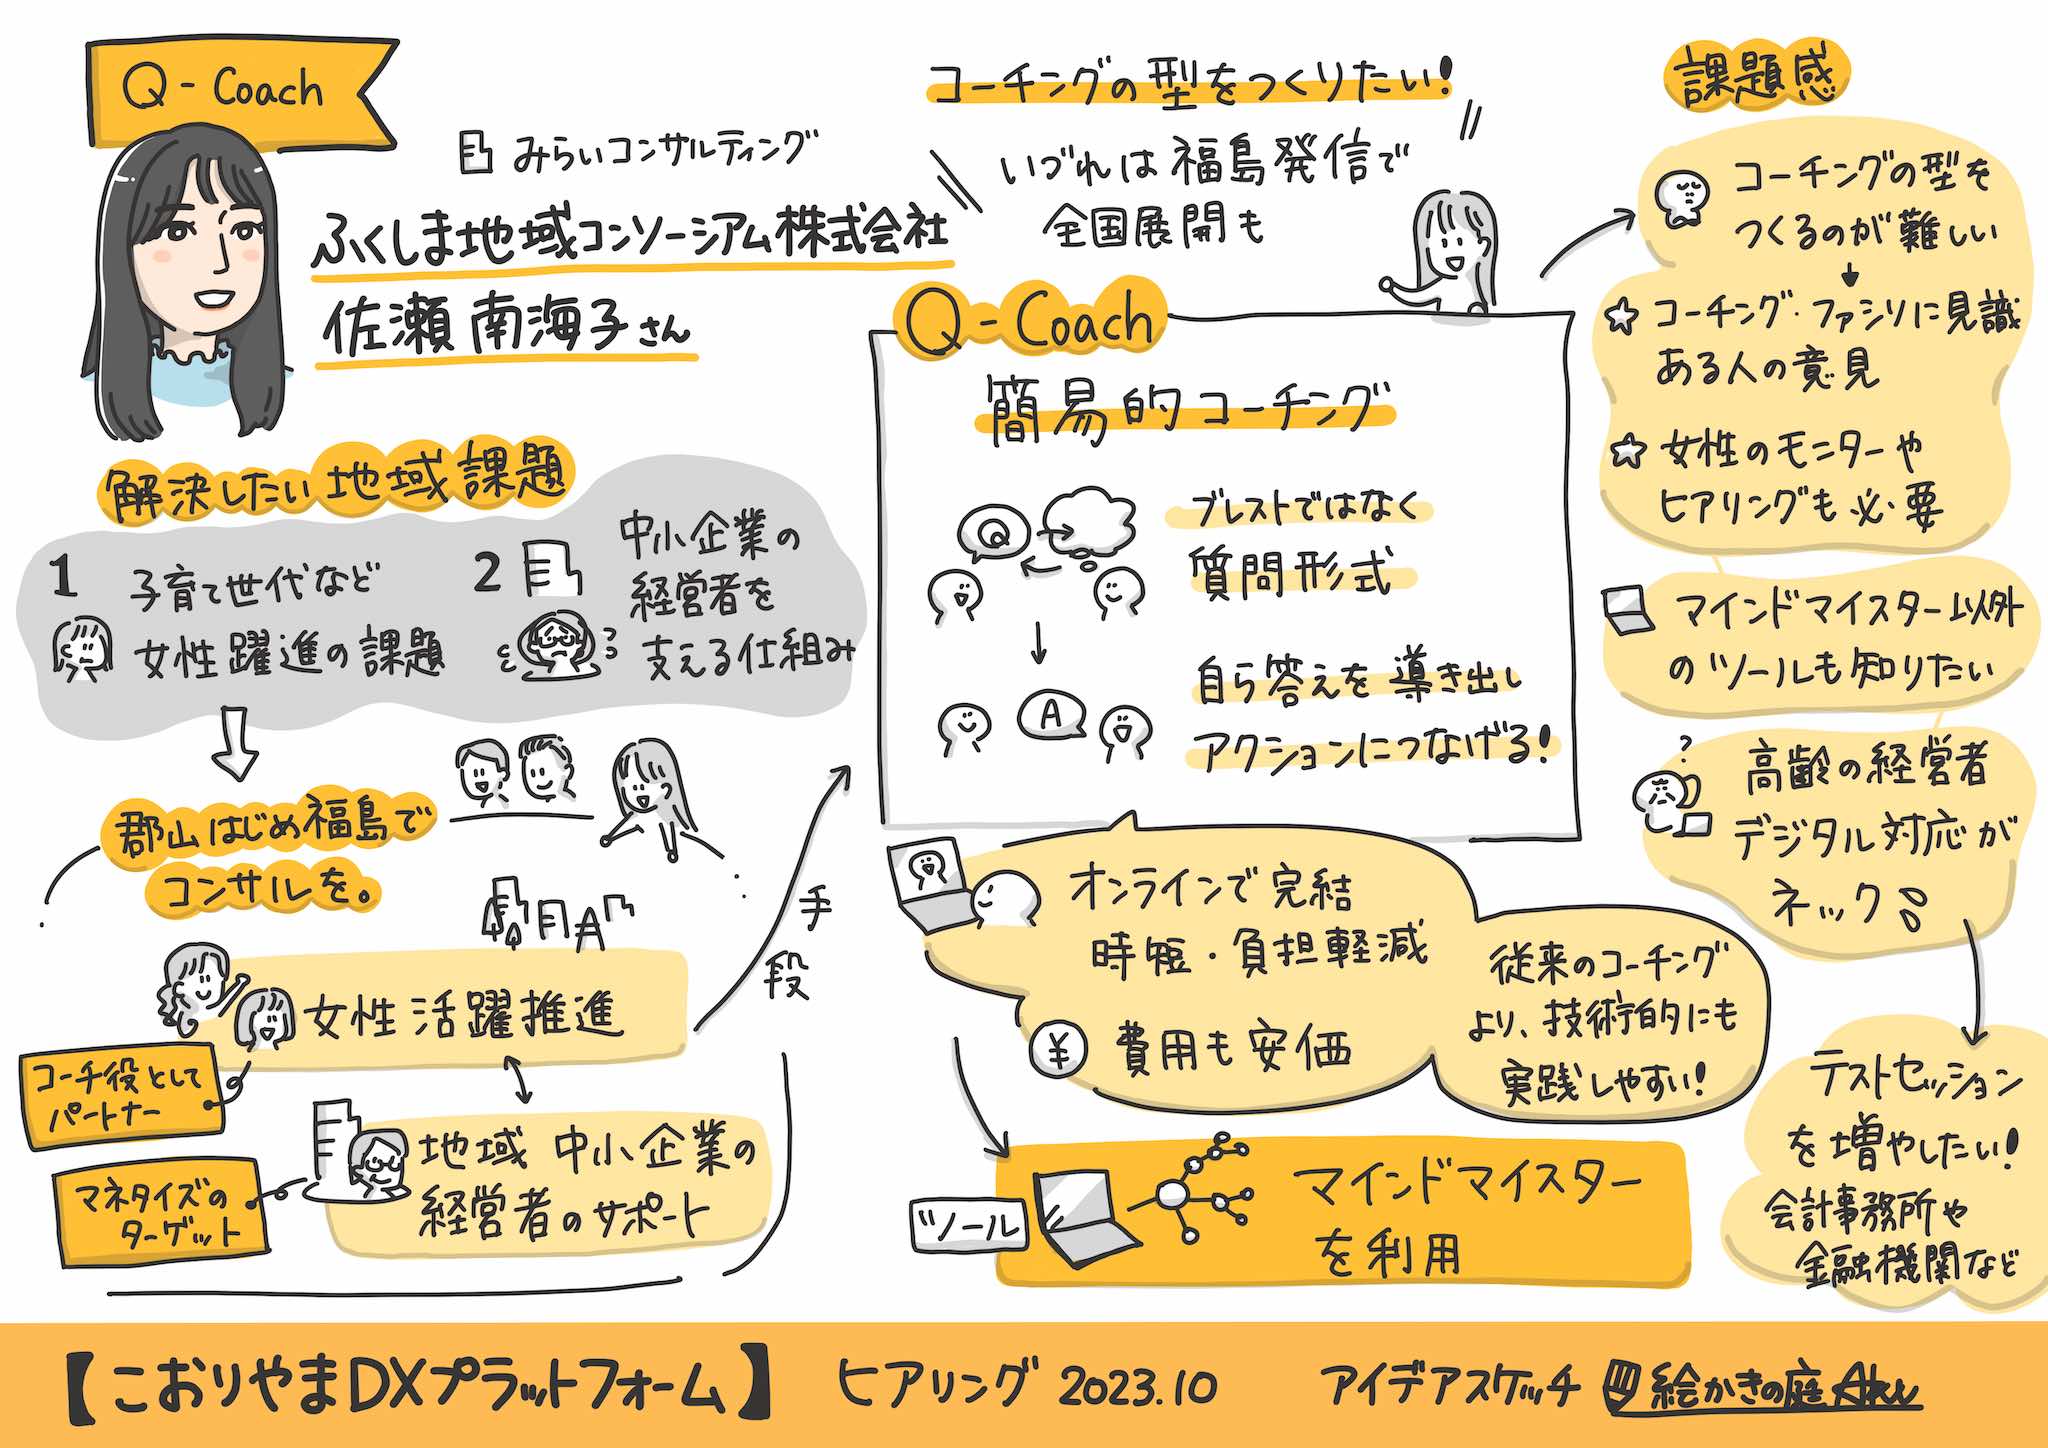 Q-Coach
みらいコンサルティング
ふくしま地域コンソーシアム株式会社
佐瀬 南海子さん
解決したい地域課題
1
子育て世代など
女性躍進の課題
2
中小企業の
経営者を
支える仕組み
郡山はじめ福島で
コンサルを。
女性活躍推進
コーチ役として
パートナー
地域 中小企業の
経営者のサポート
マネタイズの
ターゲット
手段
コーチングの型をつくりたい!
いづれは福島発信で
全国展開も
Q-Coach
簡易的コーチング
Q
ブレストではなく
質問形式
A
自ら答えを導き出し
アクションにつなげる!
オンラインで完結
時短・負担軽減
¥
費用も安価
従来のコーチング
より、技術的にも
実践しやすい!
ツール
マインドマイスター
を利用
課題感
コーチングの型を
つくるのが難しい
コーチング・ファシリに見識
ある人の意見
女性のモニターや
ヒアリングも必要
マインドマイスター以外
のツールも知りたい
?
高齢の経営者
デジタル対応が
ネック
テストセッション
を増やしたい!
会計事務所や
金融機関など
【こおりやまDXプラットフォーム】
ヒアリング 2023.10
アイデアスケッチ 絵かきの庭 Aku